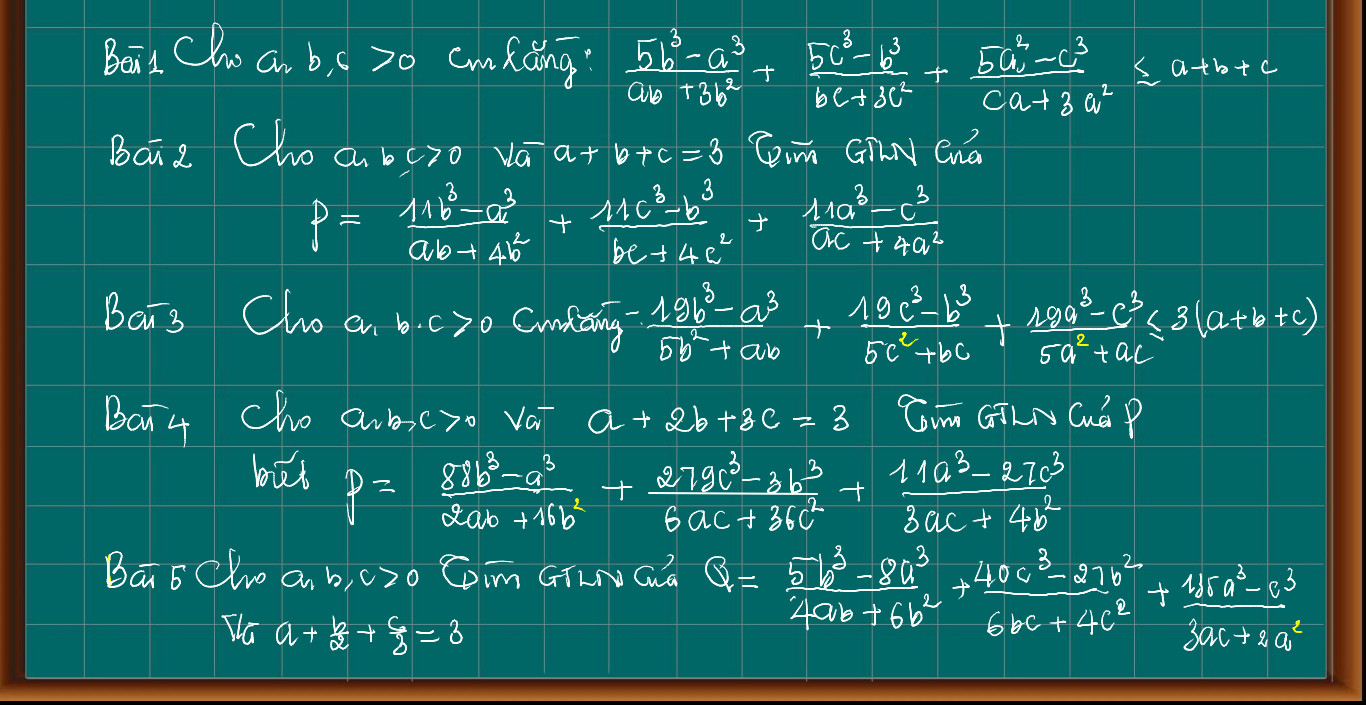 Bài 1 Cho a, b, c >0 cm rằng: (5b³ - a³)/(ab + 3b²) + (5c³ - b³)/(bc + 3c²) + (5a³ - c³)/(ca + 3a²) ≤ a+b+c
Bài 2 Cho a, b, c >0 Và a + b + c = 3 Tìm GTLN Của
P = (11b³ - a³)/(ab + 4b²) + (11c³ - b³)/(bc + 4c²) + (11a³ - c³)/(ac + 4a²)
Bài 3 Cho a, b, c >0 Cm rằng: (19b³ - a³)/(5b² + ab) + (19c³ - b³)/(5c² + bc) + (19a³ - c³)/(5a² + ac) ≤ 3(a+b+c)
Bài 4 Cho a, b, c >0 Và a + 2b + 3c = 3 Tìm GTLN Của P
biết P = (88b³ - a³)/(2ab + 16b²) + (279c³ - 3b³)/(6ac + 36c²) + (11a³ - 27c³)/(3ac + 4b²)
Bài 5 Cho a, b, c >0 Tìm GTLN Của Q = (5b³ - 8a³)/(4ab + 6b²) + (40c³ - 27b²)/(6bc + 4c²) + (135a³ - c³)/(3ac + 2a²)
Và a + b/2 + c/3 = 3